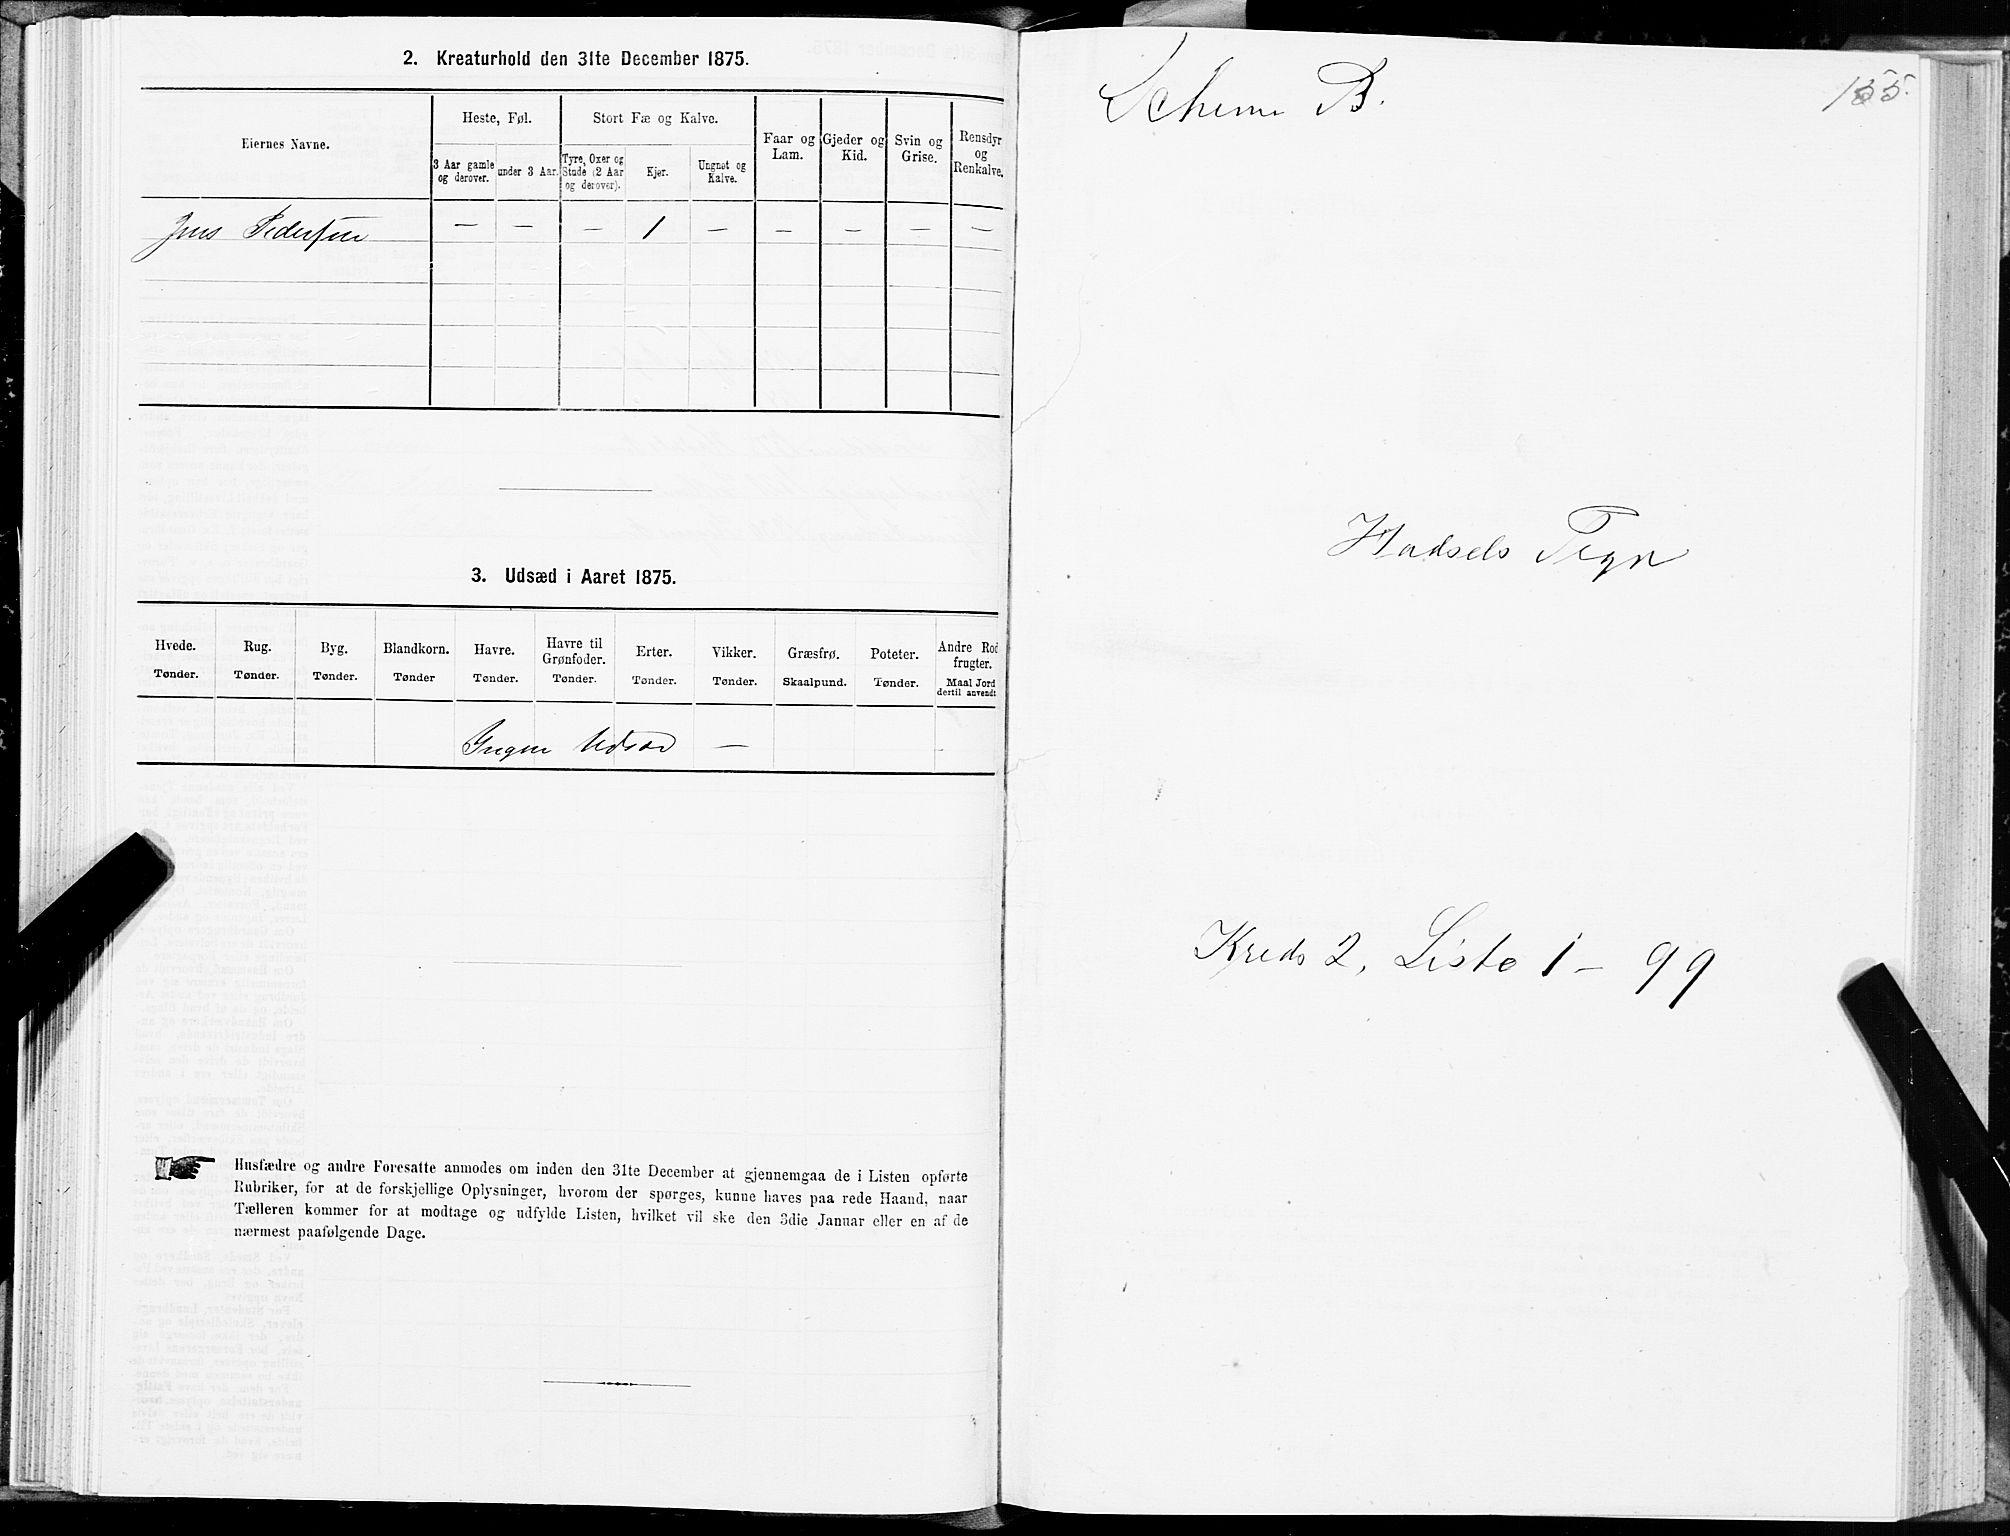 2. Kreaturhold den 31te December 1875.
Eiernes Navne.
Heste, Føl.
Stort Fæ og Kalve.
Faar og Lam.
Gjeder og Kid.
Svin og Grise.
Rensdyr og Renkalve.
3 Aar gamle og derover.
under 3 Aar.
Tyre, Oxer og Stude (2 Aar og derover).
Kjer.
Ungnøt og Kalve.
Jens Pedersen — — — 1 — — — — —
3. Udsæd i Aaret 1875.
Hvede. Tønder.
Rug. Tønder.
Byg. Tønder.
Blandkorn. Tønder
Havre. Tønder.
Havre til Grønfoder. Tønder.
Erter. Tønder.
Vikker. Tønder.
Græsfrø. Skaalpund.
Poteter. Tønder.
Andre Rodfrugter. Maal Jord dertil anvendt
Ingen Udsæd —
Husfædre og andre Foresatte anmodes om inden den 31te December at gjennemgaa de i Listen opførte
Rubriker, for at de forskjellige Oplysninger, hvorom der spørges, kunne haves paa rede Haand, naar
Tælleren kommer for at modtage og udfylde Listen, hvilket vil ske den 3die Januar eller en af de
nærmest paafølgende Dage.
Schema B.
155.
Hadsels Pgn
Kreds 2, Liste 1 – 99